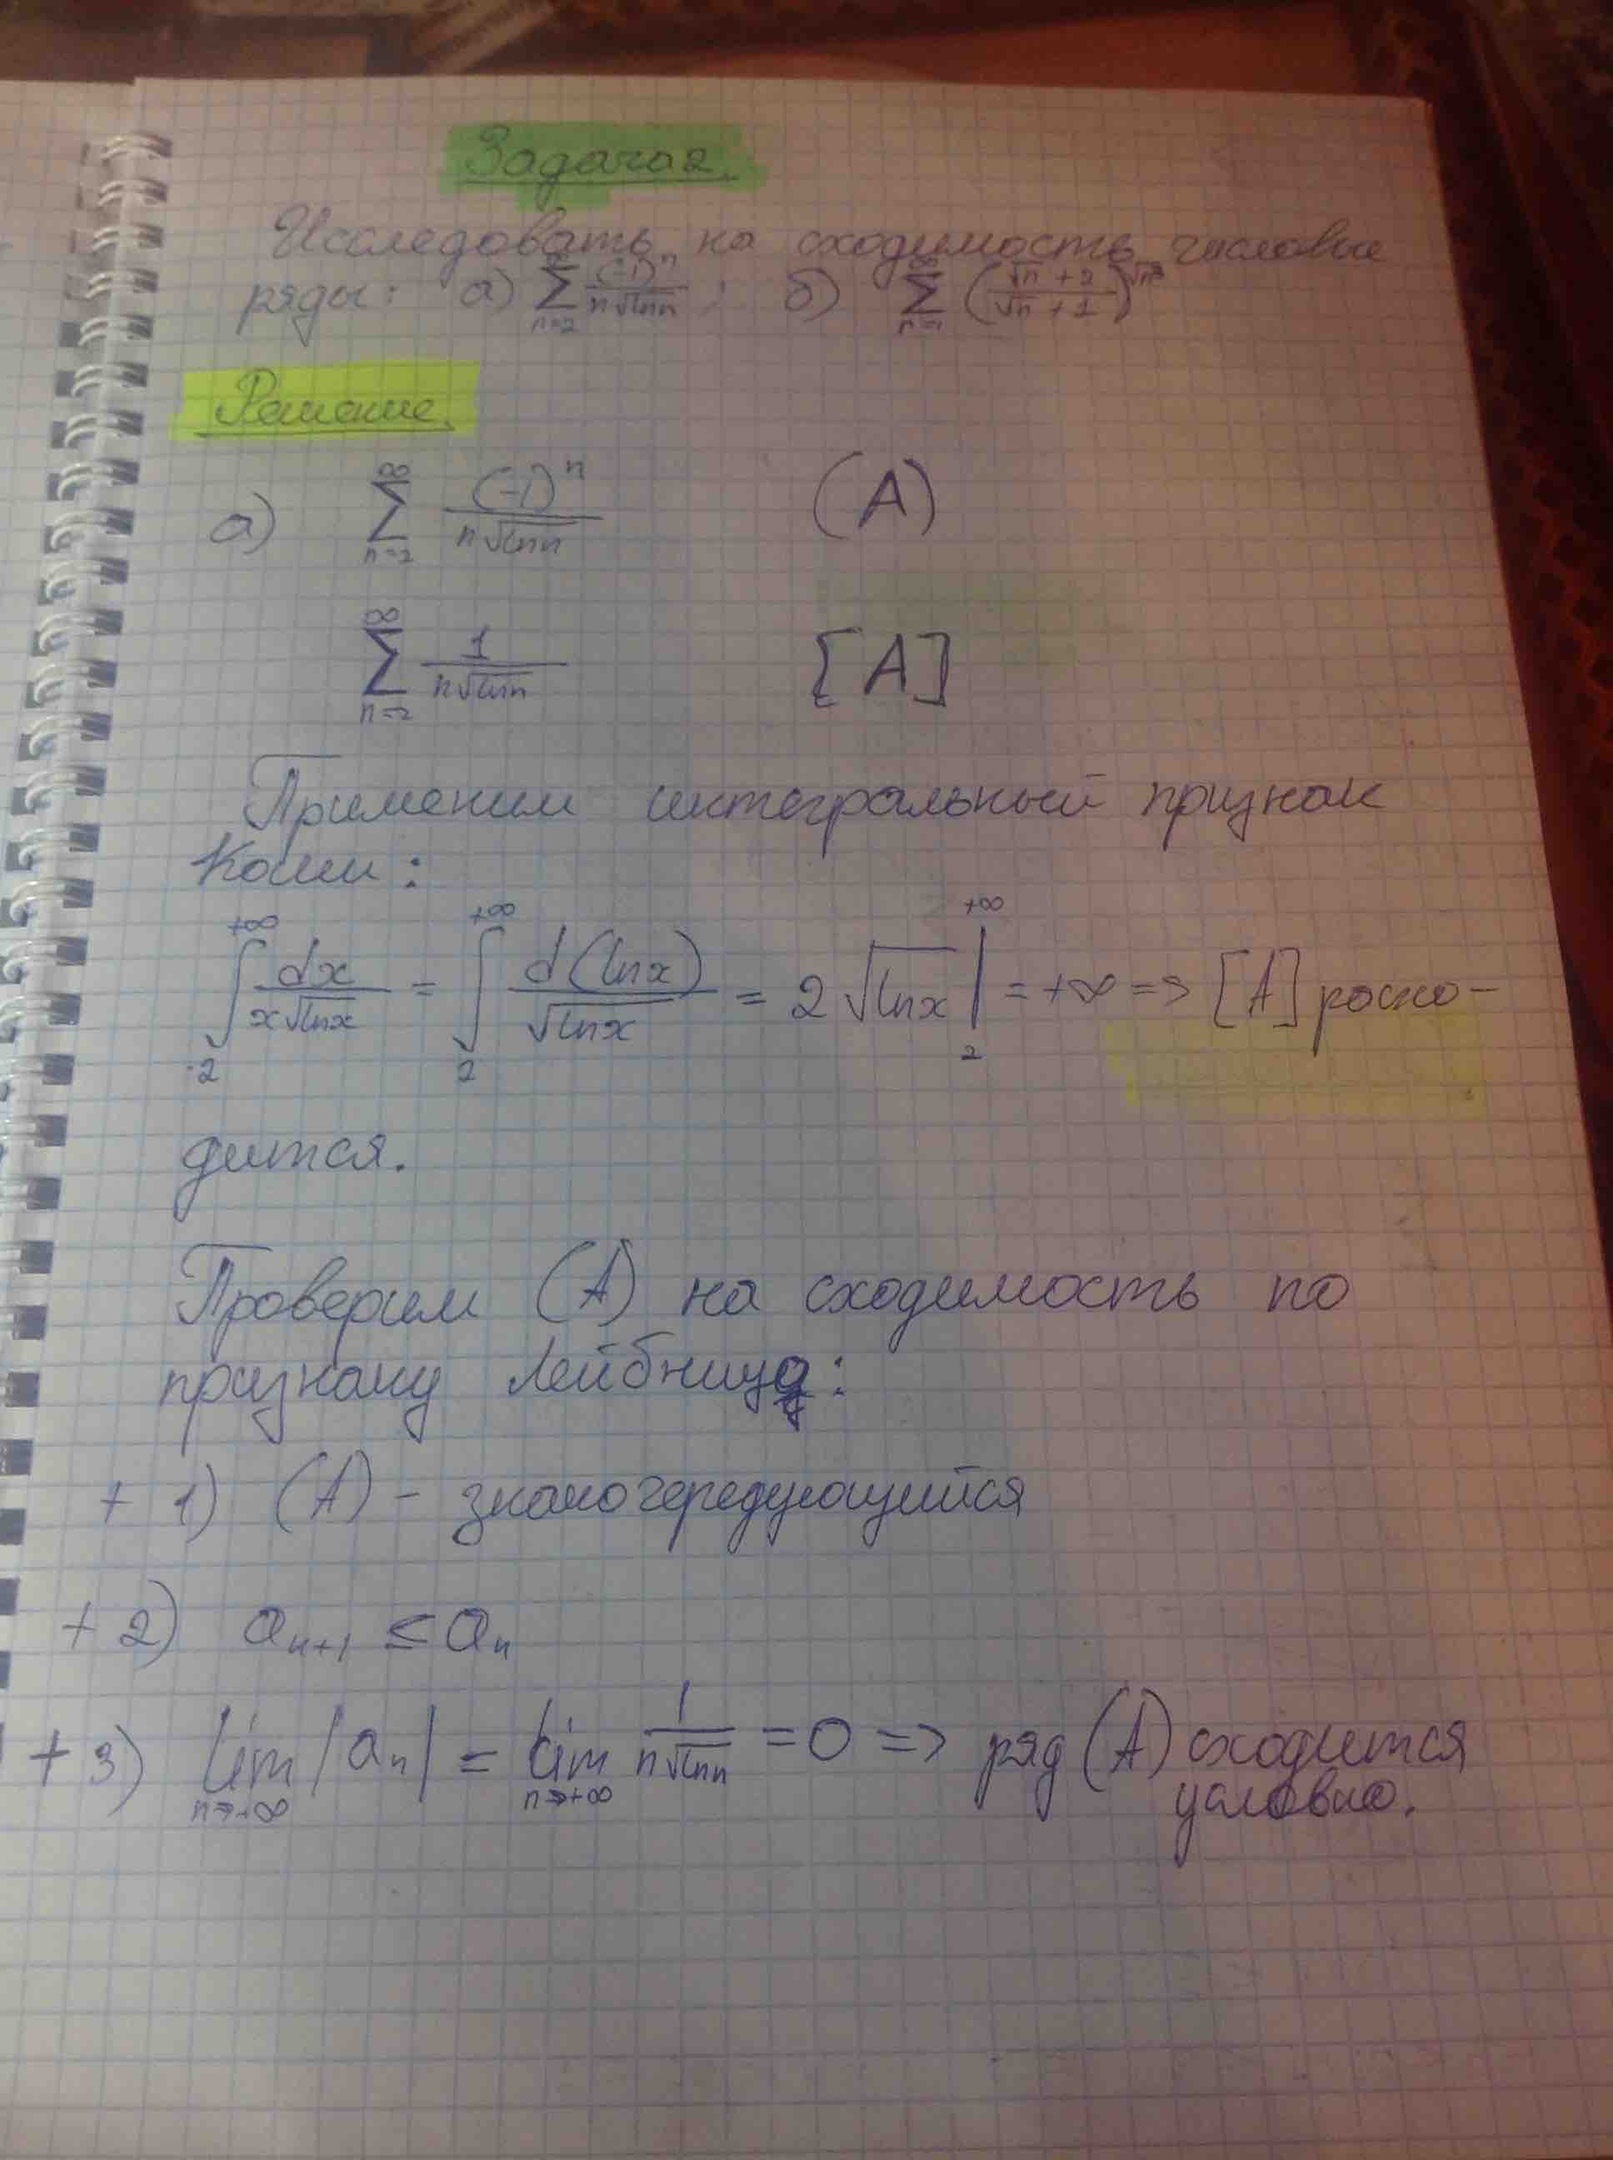 Задача 2.
Исследовать на сходимость числовые
ряды: а) ∑_{n=2}^{∞} (-1)^n / (n√(ln n)); б) ∑_{n=1}^{∞} ((√n + 2)/(√n + 1))^{√n³}
Решение.
а) ∑_{n=2}^{∞} (-1)^n / (n√(ln n)) (A)
∑_{n=2}^{∞} 1 / (n√(ln n)) [A]
Применим интегральный признак
Коши:
∫_{2}^{+∞} dx / (x√(ln x)) = ∫_{2}^{+∞} d(ln x) / √(ln x) = 2√(ln x) |_{2}^{+∞} = +∞ => [A] расхо-
дится.
Проверим (A) на сходимость по
признаку Лейбница:
+ 1) (A) – знакочередующийся
+ 2) a_{n+1} ≤ a_n
+ 3) lim_{n→+∞} |a_n| = lim_{n→+∞} 1 / (n√(ln n)) = 0 => ряд (A) сходится
условно.